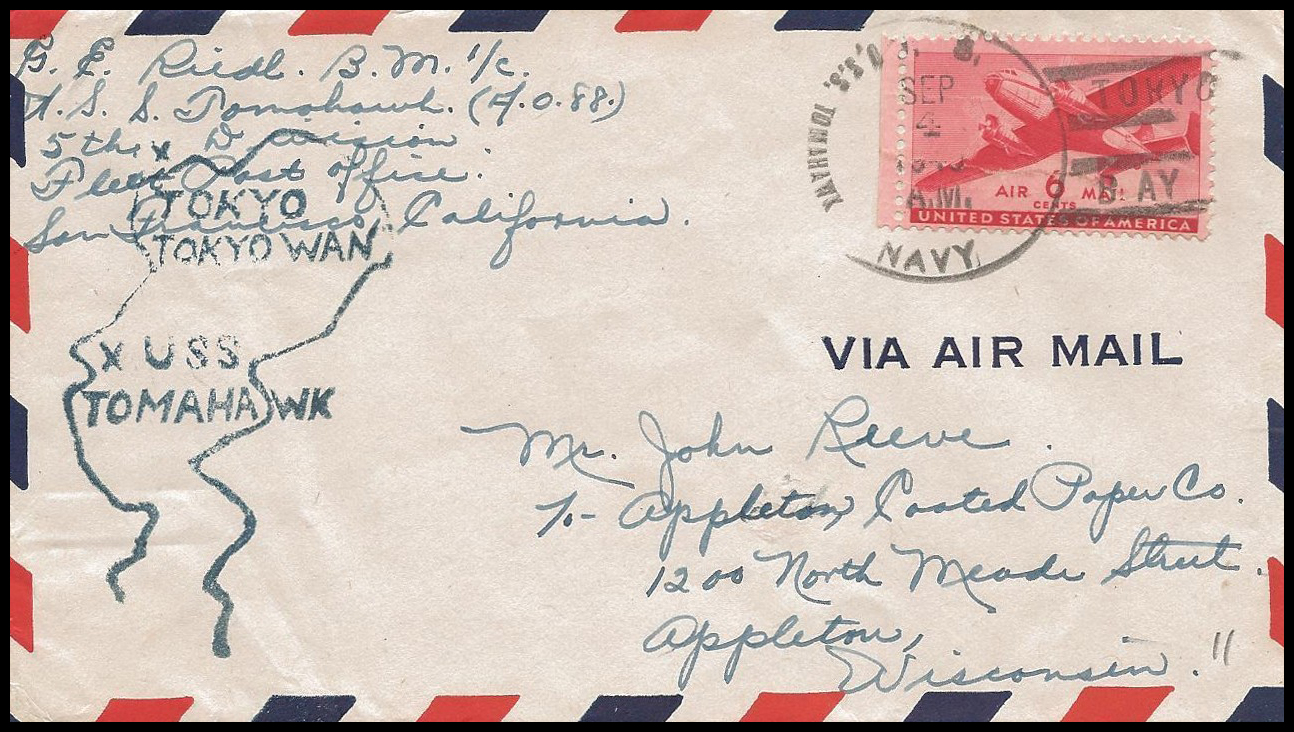 G. E. Riedl. B.M. 1/c.
U. S. S. Tomahawk. (A.O. 88.)
5th. Division
Fleet Post Office.
San Francisco, California.
X
TOKYO
TOKYO WAN
X USS
TOMAHAWK
U.S.S. TOMAHAWK
SEP
4
A.M.
NAVY
TOKYO
BAY
AIR 6 MAIL
CENTS
UNITED STATES OF AMERICA
VIA AIR MAIL
Mr. John Reeve.
℅ Appleton Coated Paper Co.
1200 North Meade Street.
Appleton,
Wisconsin. 11